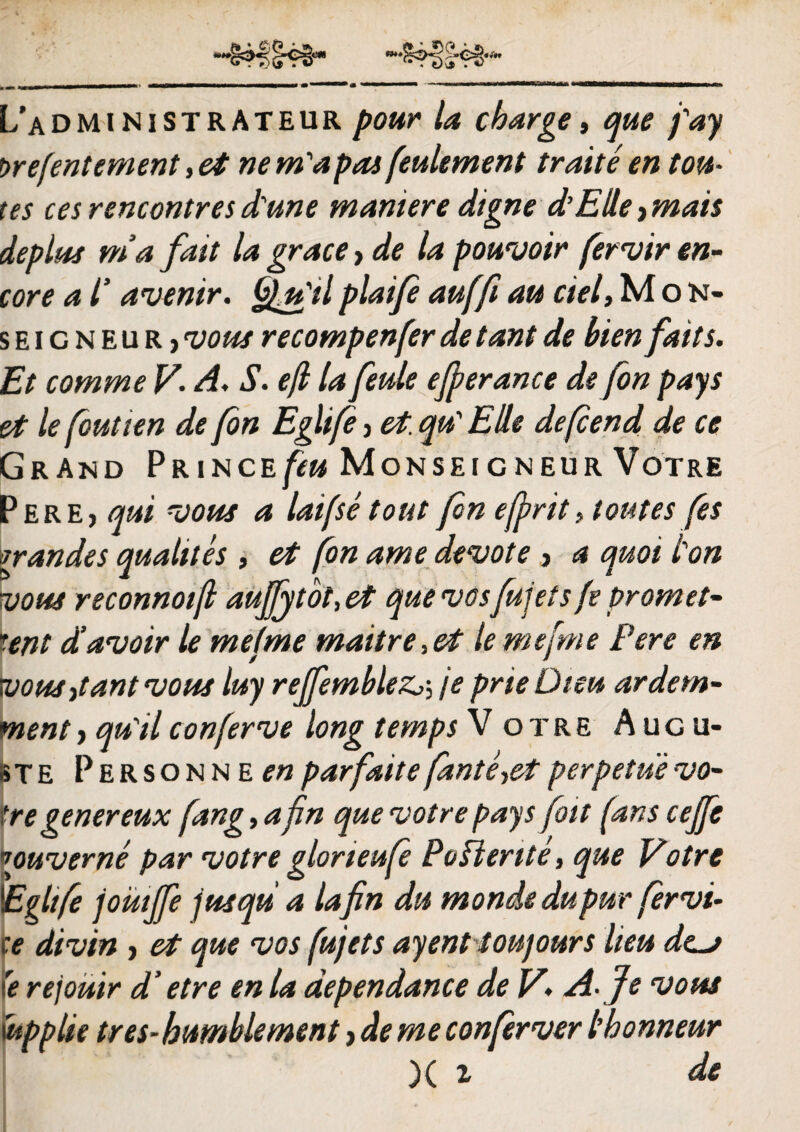 L'ADMINISTRATEUR pour la charge, que j'ay
presentement, et ne m'a pas ſeulement traité en tou-
tes ces rencontres d'une maniere digne d'Elle, mais
deplus m'a fait la grace, de la pouvoir ſervir en-
core a l' avenir. Qu'il plaiſe auſſi au ciel, MON-
SEIGNEUR, vous recompenſer de tant de bien faits.
Et comme V. A. S. eſt la ſeule eſperance de ſon pays
et le ſoutien de ſon Egliſe, et qu' Elle deſcend de ce
GRAND PRINCE feu MONSEIGNEUR VOTRE
PERE, qui vous a laiſsé tout ſon eſprit, toutes ſes
grandes qualités, et ſon ame devote, a quoi l'on
vous reconnoiſt auſſytôt, et que vos ſujets ſe promet-
tent d'avoir le meſme maitre, et le meſme Pere en
vous, tant vous luy reſſemblez; je prie Dieu ardem-
ment, qu'il conſerve long temps VOTRE AUGU-
STE PERSONNE en parfaite ſanté, et perpetuë vo-
tre genereux ſang, a fin que votre pays ſoit ſans ceſſe
gouverné par votre glorieuſe Poſterité, que Votre
Egliſe jouiſſe jusqu' a la fin du monde du pur ſervi-
ce divin, et que vos ſujets ayent toujours lieu de
ſe rejouir d' etre en la dependance de V. A. Je vous
ſupplie tres-humblement, de me conſerver l'honneur
)( 2 de